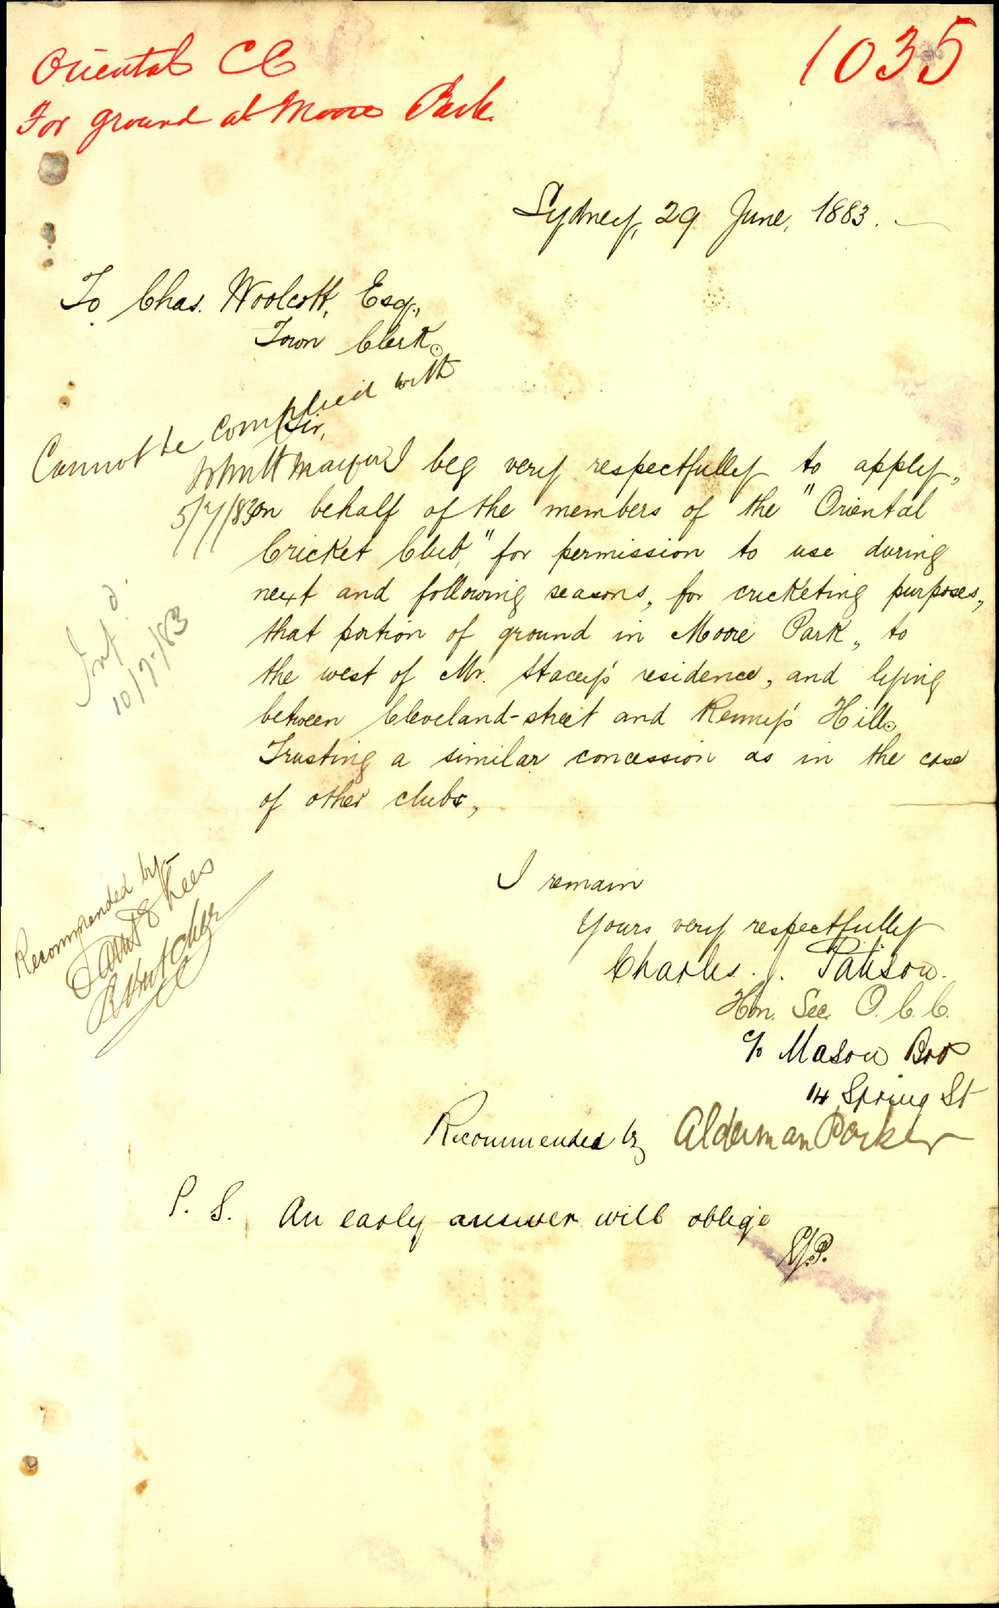 Oriental CC
For ground at Moore Park
1035
Sydney, 29 June, 1883.
To Chas. Woolcott, Esq.,
Town Clerk.
Cannot be complied with
Mayor
5/7/83
Sir,
I beg very respectfully to apply,
on behalf of the members of the "Oriental
Cricket Club," for permission to use during
next and following seasons, for cricketing purposes,
that portion of ground in Moore Park, to
the west of Mr. Stacey's residence, and lying
between Cleveland-street and Renny's Hill.
Trusting a similar concession as in the case
of other clubs,
Inf d
10/7/83
I remain
Yours very respectfully
Charles. J. Patison.
Hon. Sec. O.C.C.
c/o Mason Bros
14 Spring St
Recommended by
Lees
R Butcher
Recommended by Alderman Porker
P.S. An early answer will oblige
C.J.P.